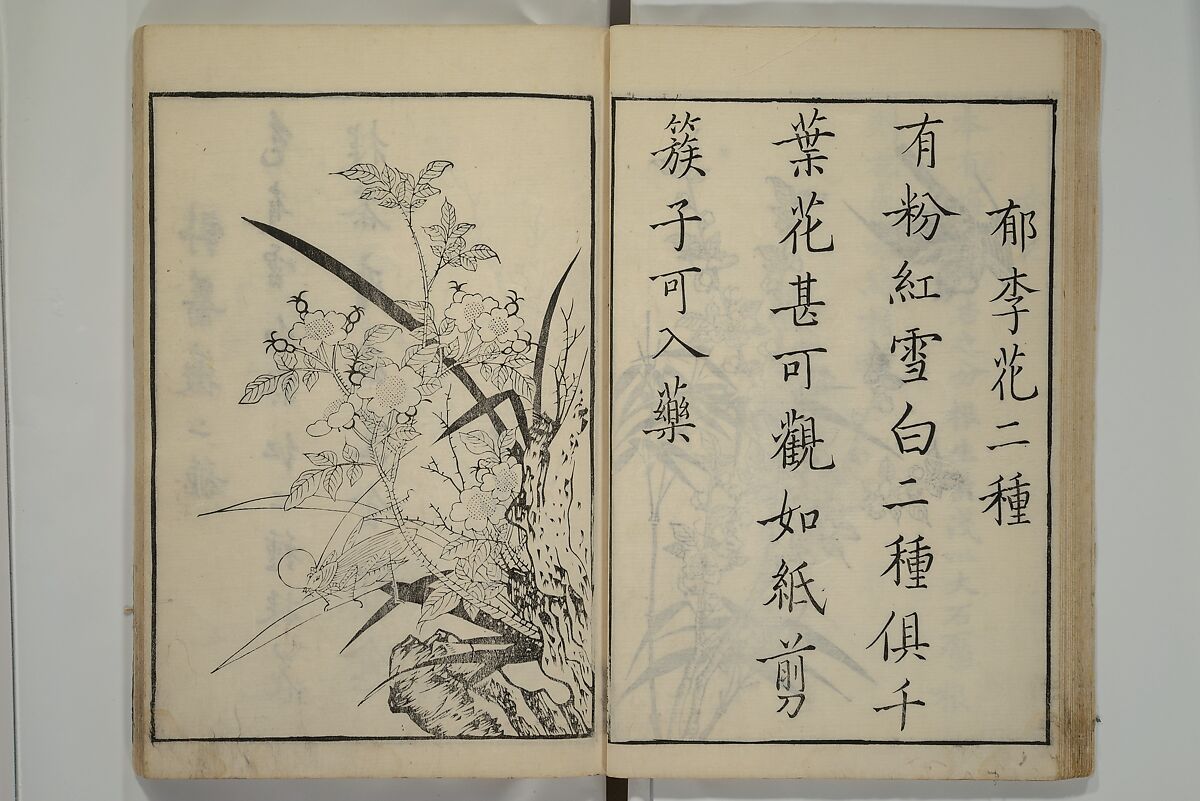 郁李花二種
有粉紅雪白二種俱千
葉花甚可觀如紙剪
簇子可入藥